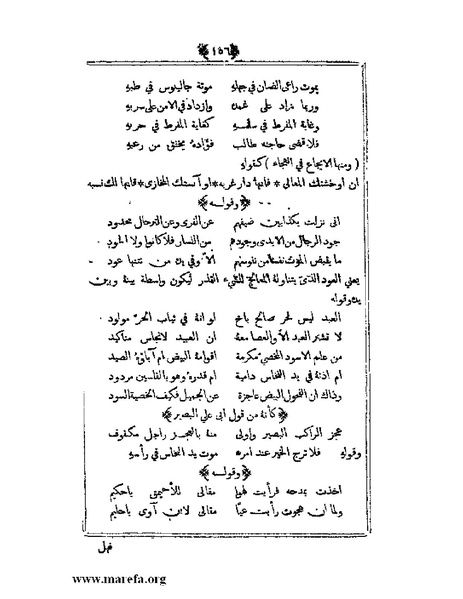 ﴿١٥٦﴾
يموت راعى الضان فى جهله موتة جالينوس فى طبه
وربما زاد على عمره وازداد فى الامن على سربه
وغاية المفرط فى سلمه كغاية المفرط فى حربه
فلا قضى حاجته طالب فؤاده يخفق من رعبه
( ومنها الايجاع فى الهجاء ) كقوله
ان اوحشتك المعالى * فانها دار غربه * او آنستك المخازى * فانها لك نسبه
﴿وقوله﴾
انى نزلت بكذابين ضيفهم عن القرى وعن الترحال محدود
جود الرجال من الايدى وجودهم من اللسان فلا كانوا ولا الجود
ما يقبض الموت نفسا من نفوسهم الا وفى يده من نتنها عود
يعنى العود الذى يتناوله المعالج للشىء القذر ليكون واسطة بينه وبين
يده وقوله
العبد ليس لحر صالح باخ لو انه فى ثياب الحر مولود
لا تشتر العبد الا والعصا معه ان العبيد لانجاس مناكيد
من علم الاسود المخصى مكرمة اقوامه البيض ام آباؤه الصيد
ام اذنه فى يد النخاس دامية ام قدره وهو بالفلسين مردود
وذاك ان الفحول البيض عاجزة عن الجميل فكيف الخصية السود
﴿كانه من قول ابى على البصير﴾
عجز الراكب البصير واولى منه بالعجز راجل مكفوف
وقوله فلا ترج الخير عند امرء مرت يد النخاس فى رأسه
﴿وقوله﴾
اخذت بمدحه فرأيت لهوا مقالى للاحيمق ياحكيم
ولما ان هجوت رأيت عيا مقالى لابن آوى ياحليم
فهل
www.marefa.org